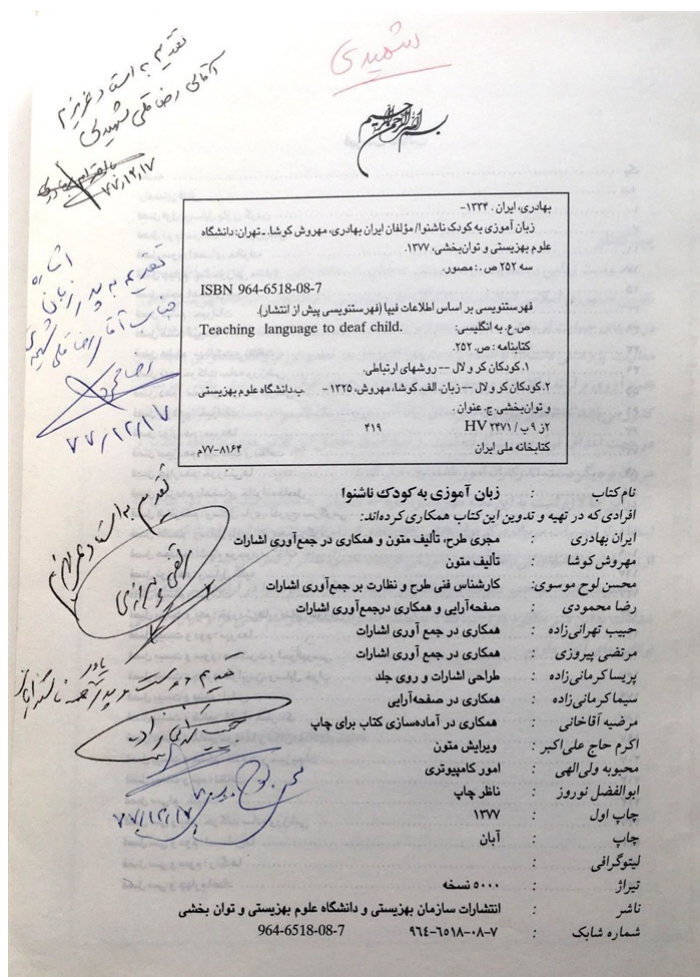 شهیدی
بسم الله الرحمن الرحیم
تقدیم به استاد عزیزم
آقای رضا قلی شهیدی
۷۷/۱۲/۱۷
بهادری، ایران. ۱۳۳۴-
زبان آموزی به کودک ناشنوا/ مؤلفان ایران بهادری، مهروش کوشا. ـ تهران: دانشگاه
علوم بهزیستی و توان‌بخشی، ۱۳۷۷.
سه ۲۵۲ ص . : مصور.
ISBN 964-6518-08-7
فهرستنویسی بر اساس اطلاعات فیپا (فهرستنویسی پیش از انتشار).
ص.ع. به انگلیسی: Teaching language to deaf child.
کتابنامه : ص. ۲۵۲.
۱. کودکان کر و لال -- روشهای ارتباطی.
۲. کودکان کر و لال -- زبان. الف. کوشا، مهروش، ۱۳۲۵- ب. دانشگاه علوم بهزیستی
و توان‌بخشی. ج. عنوان .
۲ز ۹ب / HV ۲۴۷۱ ۴۱۹
کتابخانه ملی ایران ۷۷-۸۱۶۴م
اشاره
تقدیم به پدر زبان
جناب آقا رضا قلی شهیدی
رضا محمودی
۷۷/۱۲/۱۷
نام کتاب : زبان آموزی به کودک ناشنوا
افرادی که در تهیه و تدوین این کتاب همکاری کرده‌اند:
ایران بهادری : مجری طرح، تألیف متون و همکاری در جمع‌آوری اشارات
مهروش کوشا : تألیف متون
محسن لوح موسوی: کارشناس فنی طرح و نظارت بر جمع‌آوری اشارات
رضا محمودی : صفحه‌آرایی و همکاری درجمع‌آوری اشارات
حبیب تهرانی‌زاده : همکاری در جمع آوری اشارات
مرتضی پیروزی : همکاری در جمع آوری اشارات
پریسا کرمانی‌زاده : طراحی اشارات و روی جلد
سیما کرمانی‌زاده : همکاری در صفحه‌آرایی
مرضیه آقاخانی : همکاری در آماده‌سازی کتاب برای چاپ
اکرم حاج علی‌اکبر : ویرایش متون
محبوبه ولی‌الهی : امور کامپیوتری
ابوالفضل نوروز : ناظر چاپ
چاپ اول : ۱۳۷۷
چاپ : آبان
لیتوگرافی :
تیراژ : ۵۰۰۰ نسخه
ناشر : انتشارات سازمان بهزیستی و دانشگاه علوم بهزیستی و توان بخشی
شماره شابک : ۹۶۴-۶۵۱۸-۰۸-۷ 964-6518-08-7
تقدیم به استاد عزیزم
۷۷/۱۲/۱۷